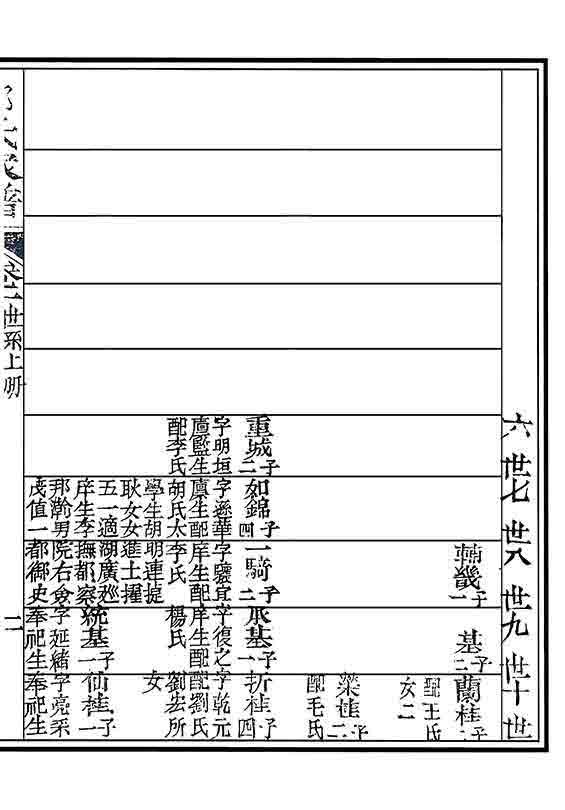 六世七世八世九世十世
重城 子二
字明垣
廩監生
配李氏
如錦 子四
字遜華
廩生配
胡氏太
學生胡
耿女女
五一適
庠生李
那瀚男
茂值一
輔畿 子一
一騎 子二
字驥宜
庠生配
李氏
明連捷
進士擢
湖廣巡
撫都察
院右僉
都御史
基 子二
承基 子一
字復之
庠生配
楊氏
統基 子一
字延緒
奉祀生
蘭桂 子二
配王氏
女二
榮桂 子二
配毛氏
折桂 子四
字乾元
配劉氏
劉宏所
女
仙桂 子一
字亮采
奉祀生
卷二世系上册
二